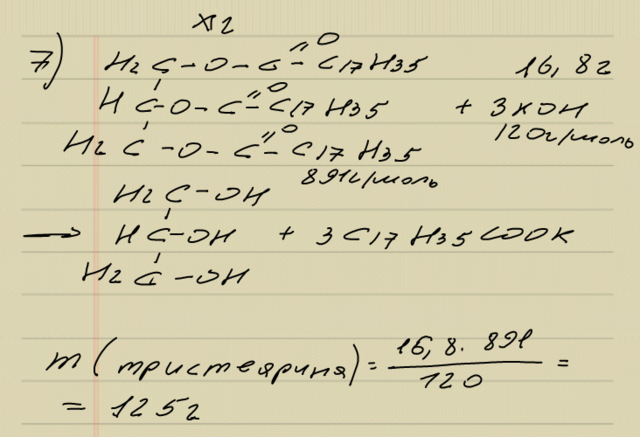 x г
7) H2C-O-C=O-C17H35 16,8г
HC-O-C=O-C17H35 + 3KOH
120г/моль
H2C-O-C=O-C17H35
891г/моль
H2C-OH
→ HC-OH + 3C17H35COOK
H2C-OH
m(тристеарина) = 16,8·891/120 =
= 125г